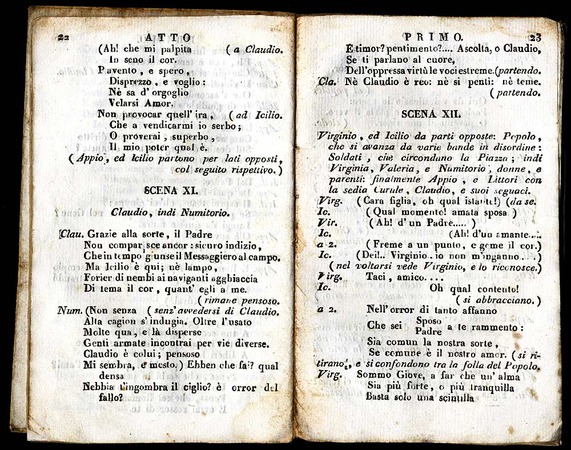 22 ATTO
(Ah! che mi palpita ( a Claudio.
In seno il cor.
Pavento, e spero,
Disprezzo, e voglio:
Nè sa d'orgoglio
Velarsi Amor.
Non provocar quell'ira, ( ad Icilio.
Che a vendicarmi io serbo;
O proverai, superbo,
Il mio poter qual è.
( Appio, ed Icilio partono per lati opposti,
col seguito rispettivo.)
SCENA XI.
Claudio, indi Numitorio.
Clau. Grazie alla sorte, il Padre
Non comparsce ancor: sicuro indizio,
Che in tempo giunse il Messaggiero al campo.
Ma Icilio è qui; nè lampo,
Forier di nembi ai naviganti agghiaccia
Di tema il cor, quant' egli a me.
( rimane pensoso.
Num. (Non senza ( senz' avvedersi di Claudio.
Alta cagion s'indugia. Oltre l'usato
Molte qua, e là disperse
Genti armate incontrai per vie diverse.
Claudio è colui; pensoso
Mi sembra, e mesto.) Ebben che fa? qual
densa
Nebbia t'ingombra il ciglio? è error del
fallo?
PRIMO. 23
E timor? pentimento?.... Ascolta, o Claudio,
Se ti parlano al cuore,
Dell'oppressa virtù le voci estreme. (partendo.
Cla. Nè Claudio è reo: nè si penti: nè teme.
(partendo.
SCENA XII.
Virginio, ed Icilio da parti opposte: Popolo,
che si avanza da varie bande in disordine:
Soldati, che circondano la Piazza; indi
Virginia, Valeria, e Numitorio, donne, e
parenti: finalmente Appio, e Littori con
la sedia Curule, Claudio, e suoi seguaci.
Virg. (Cara figlia, oh qual istante!) (da se.
Ic. (Qual momento! amata sposa )
Vir. (Ah! d'un Padre..... )
Ic. (Ah! d'un amante....
a 2. (Freme a un punto, e geme il cor.)
Ic. (Dei!.. Virginio. io non m'inganno....)
( nel voltarsi vede Virginio, e lo riconosce.)
Virg. Taci, amico....
Ic. Oh qual contento!
( si abbracciano.)
a 2. Nell' orror di tanto affanno
Che sei Sposo
Padre a te rammento:
Sia comun la nostra sorte,
Se comune è il nostro amor. ( si ri-
tirano, e si confondono tra la folla del Popolo.
Virg. Sommo Giove, a far che un' alma
Sia più forte, o più tranquilla
Basta solo una scintilla